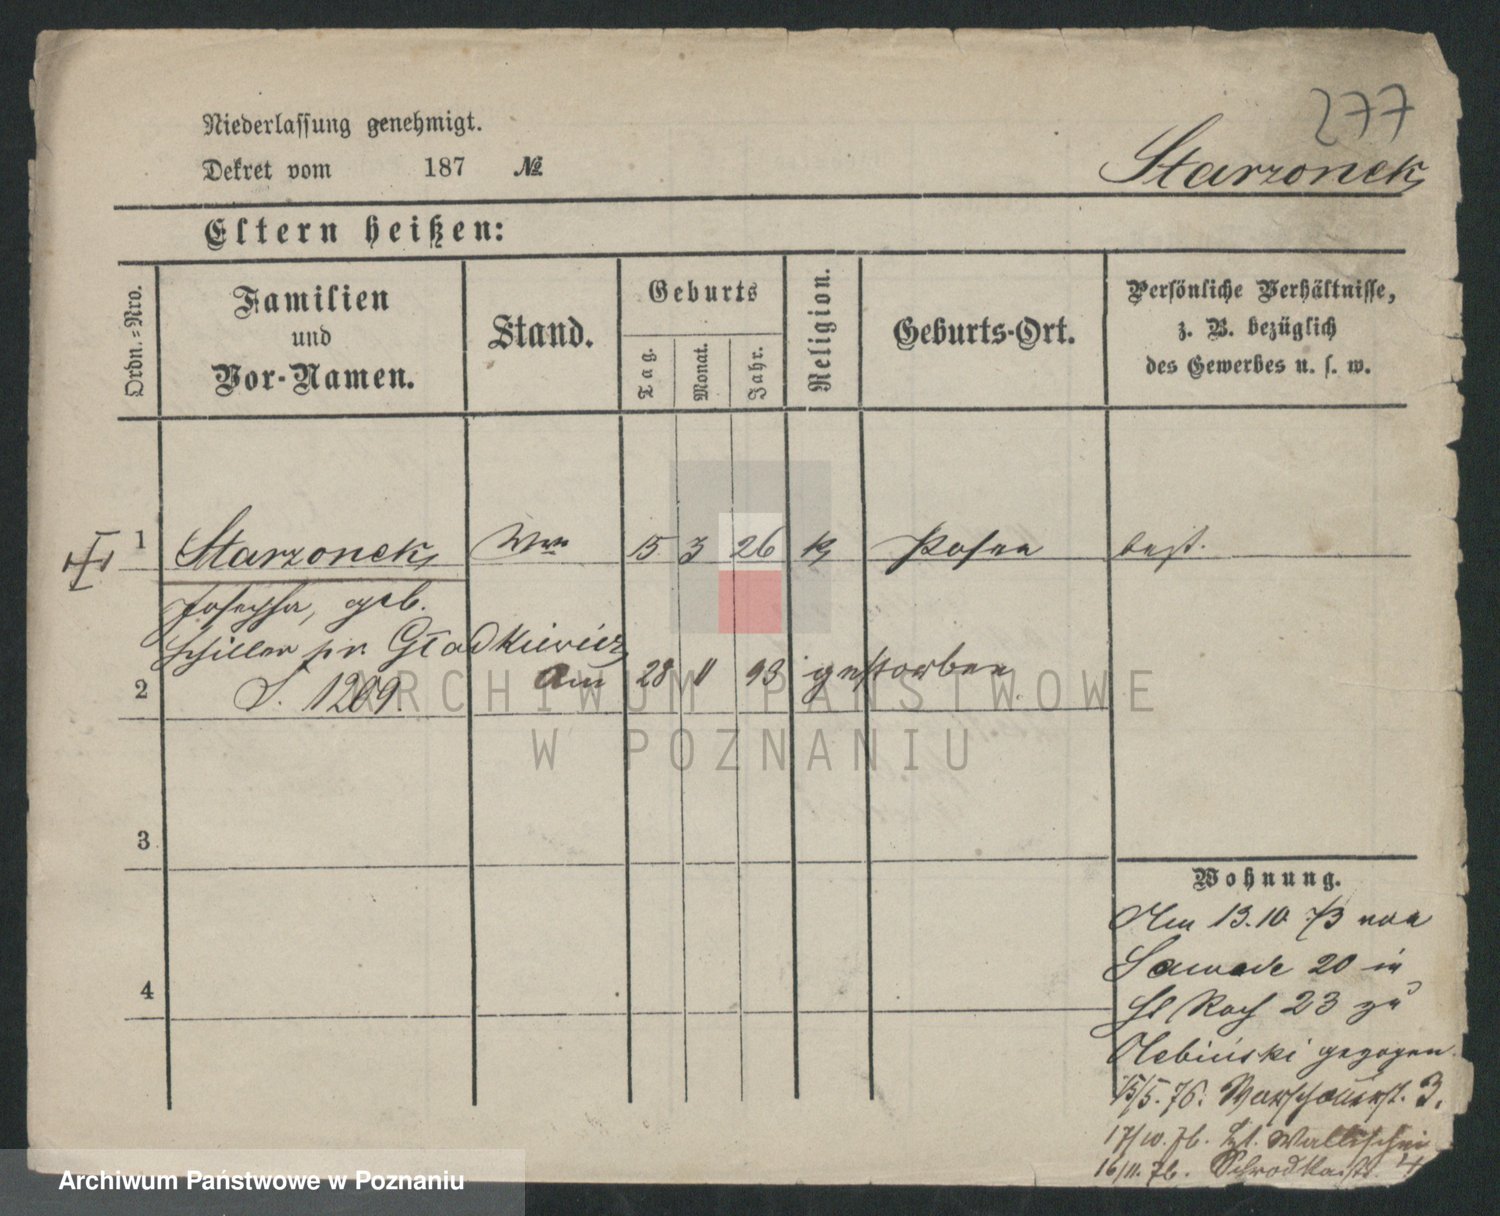 277
Niederlassung genehmigt.
Dekret vom 187 №
Starzonek
Eltern heißen:
Ordn.-Nro.
Familien
und
Vor-Namen.
Stand.
Geburts
Tag.
Monat.
Jahr.
Religion.
Geburts-Ort.
Persönliche Verhältnisse,
z. B. bezüglich
des Gewerbes u. s. w.
1 Starzonek Wwe 15 3 26 k Posen best.
Josepha, geb.
Schiller pr. Gładkiewicz
2 S. 1269 am 28 11 93 gestorben
3
4
Wohnung.
Am 13.10 73 von
Sawade 20 in
St Roch 23 zu
gezogen
15/5. 76. Warschauerst. 3.
17/10. 76. Wallischei
16/11. 76. Schrodkaist. 4
ARCHIWUM PAŃSTWOWE
W POZNANIU
Archiwum Państwowe w Poznaniu